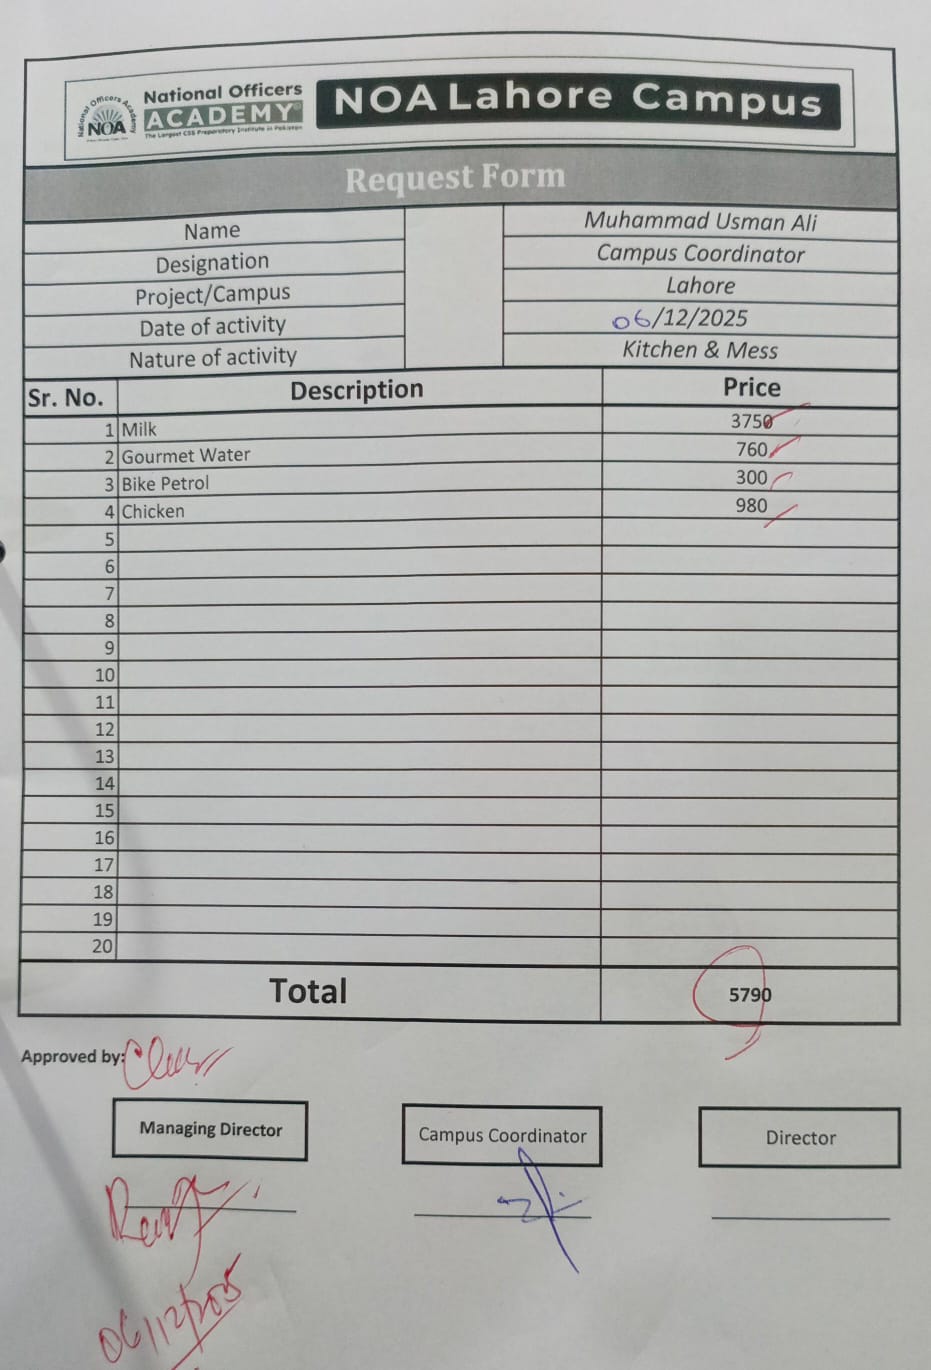 National Officers Academy
NOA
National Officers
ACADEMY
The Largest CSS Preparatory Institute in Pakistan
NOA Lahore Campus
Request Form
Name Muhammad Usman Ali
Designation Campus Coordinator
Project/Campus Lahore
Date of activity 06/12/2025
Nature of activity Kitchen & Mess
Sr. No. Description Price
1 Milk 3750
2 Gourmet Water 760
3 Bike Petrol 300
4 Chicken 980
5
6
7
8
9
10
11
12
13
14
15
16
17
18
19
20
Total 5790
Approved by:
Managing Director Campus Coordinator Director
06/12/2025